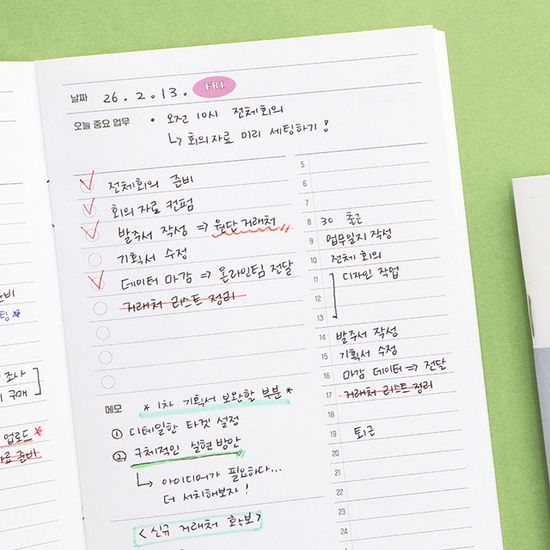 날짜 26. 2. 13. FRI
오늘 중요 업무 • 오전 10시 전체회의
↳ 회의자료 미리 세팅하기!
전체회의 준비
회의자료 컨펌
발주서 작성 ⇒ 원단 거래처
기획서 수정
데이터 마감 ⇒ 온라인팀 전달
거래처 리스트 정리
메모
* 1차 기획서 보완할 부분 *
① 디테일한 타겟 설정
② 구체적인 실현 방안
↳ 아이디어가 필요하다...
더 서치해보자!
<신규 거래처 확보>
5
6
7
8 30 출근
9 업무일지 작성
10 전체 회의
11 디자인 작업
12
13
14 발주서 작성
15 기획서 수정
16 마감 데이터 ⇒ 전달
17 거래처 리스트 정리
18
19 퇴근
20
21
22
23
24
준비
조사
구매
업로드 *
자료 준비